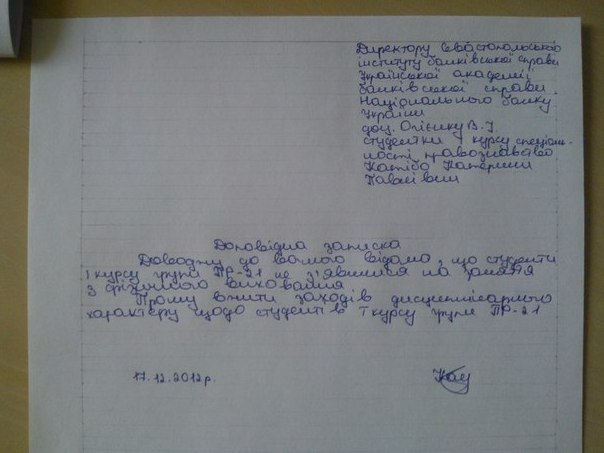 Директору Севастопольського
інституту банківської справи
Української академії
банківської справи
Національного банку
України
доц. Огієнку В.І.
студентки курсу спеціаль-
ності правознавство
Катерини
Павлівни
Доповідна записка
Доводжу до вашого відома, що студенти
І курсу групи ПР-21 не з'явилися на заняття
з фізичного виховання
Прошу вжити заходів дисциплінарного
характеру щодо студентів І курсу групи ПР-21
17.12.2012р.